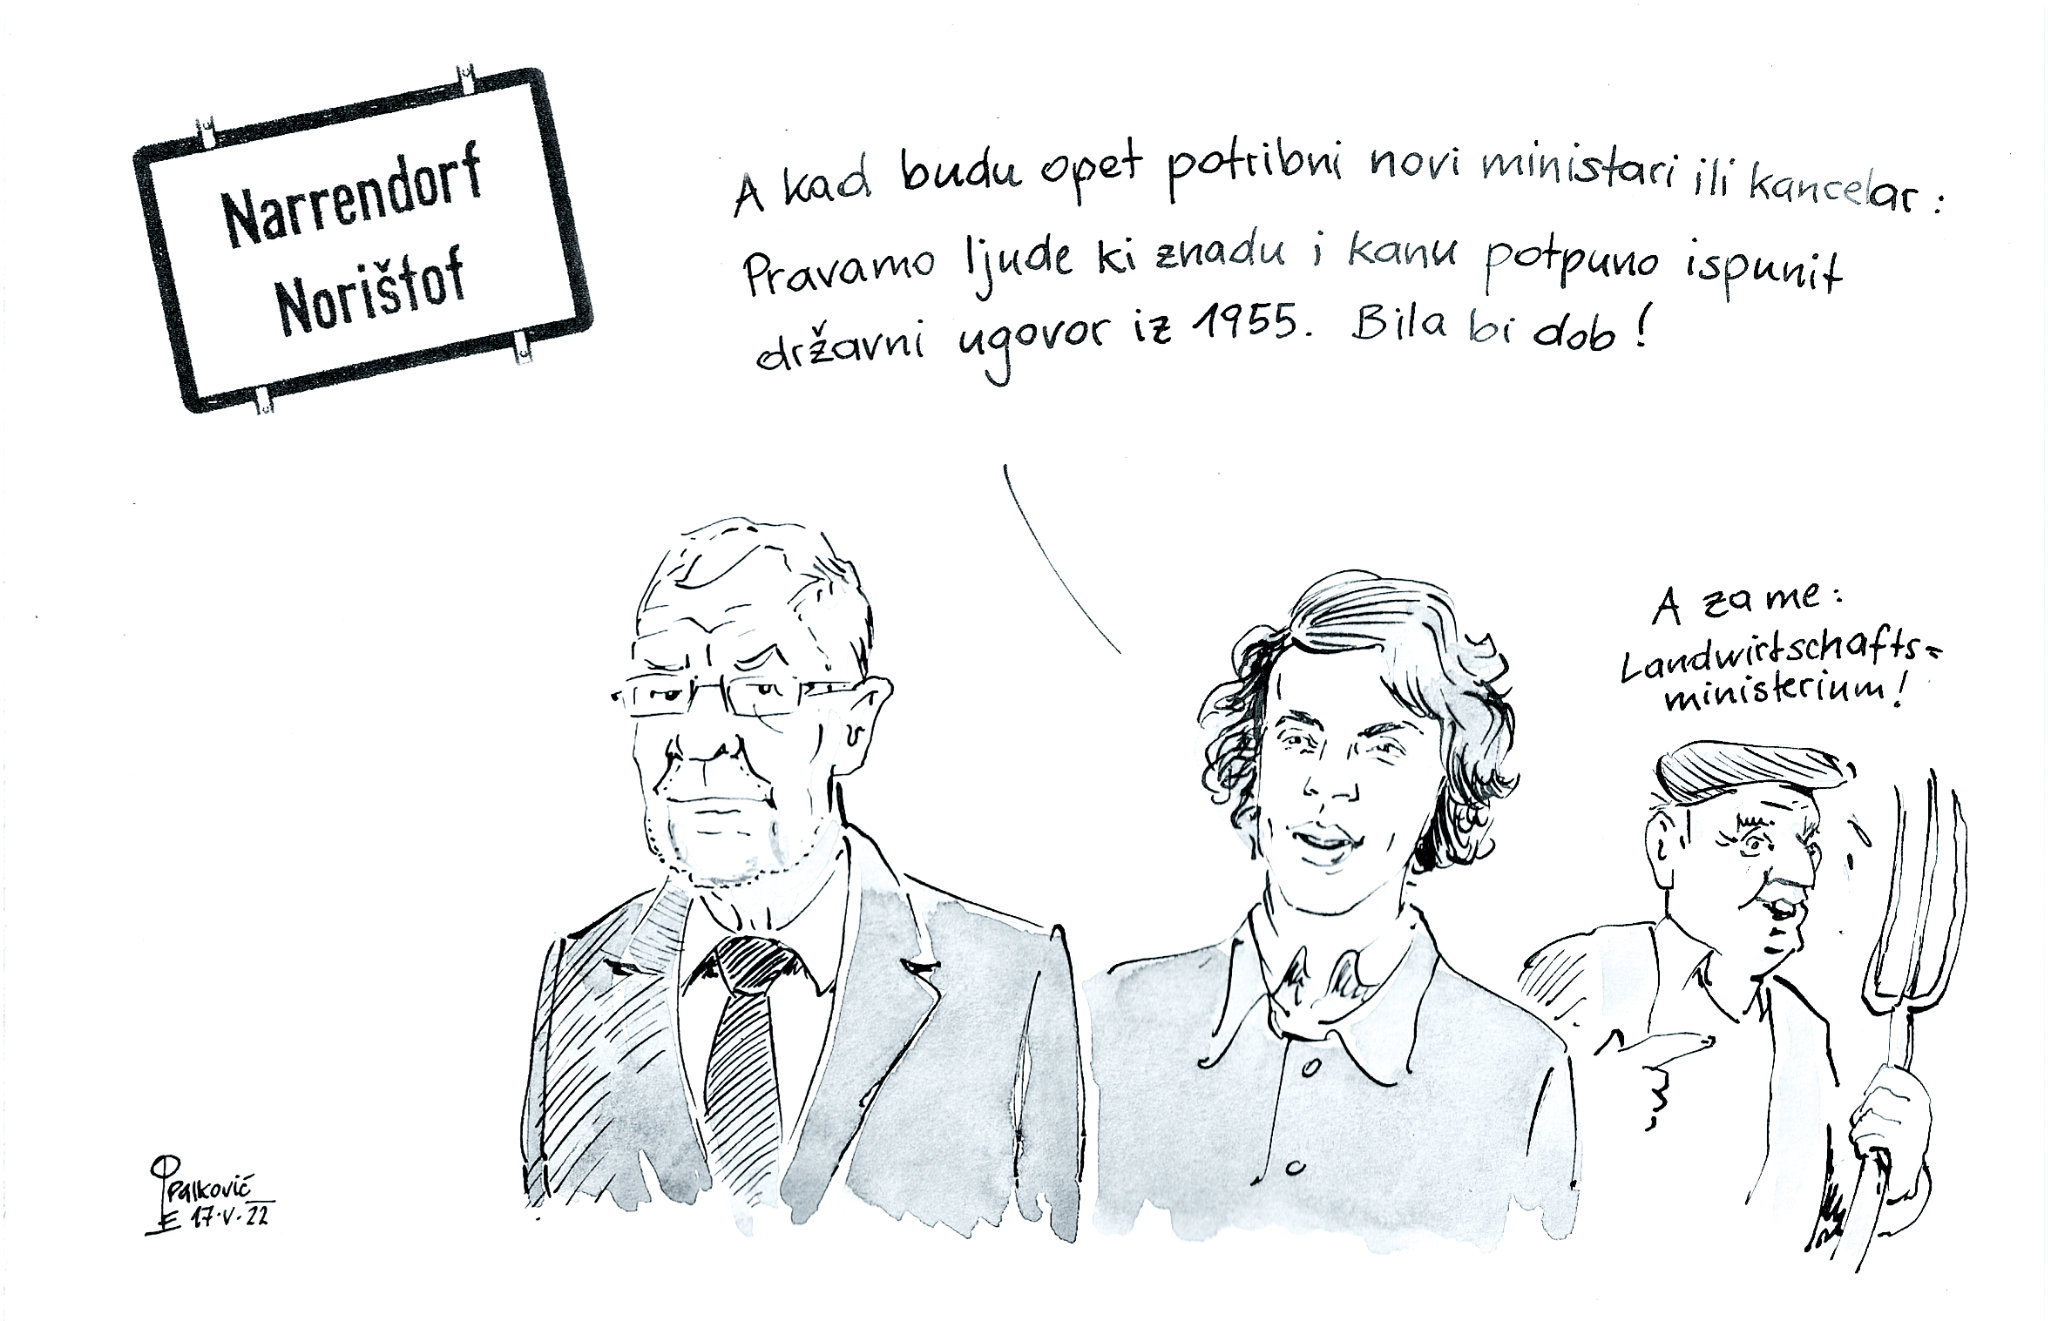 Narrendorf
Norištof
A kad budu opet potribni novi ministari ili kancelar:
Pravamo ljude ki znadu i kanu potpuno ispunit
državni ugovor iz 1955. Bila bi dob!
A za me:
Landwirtschafts=
ministerium!
Palković
17.V.22